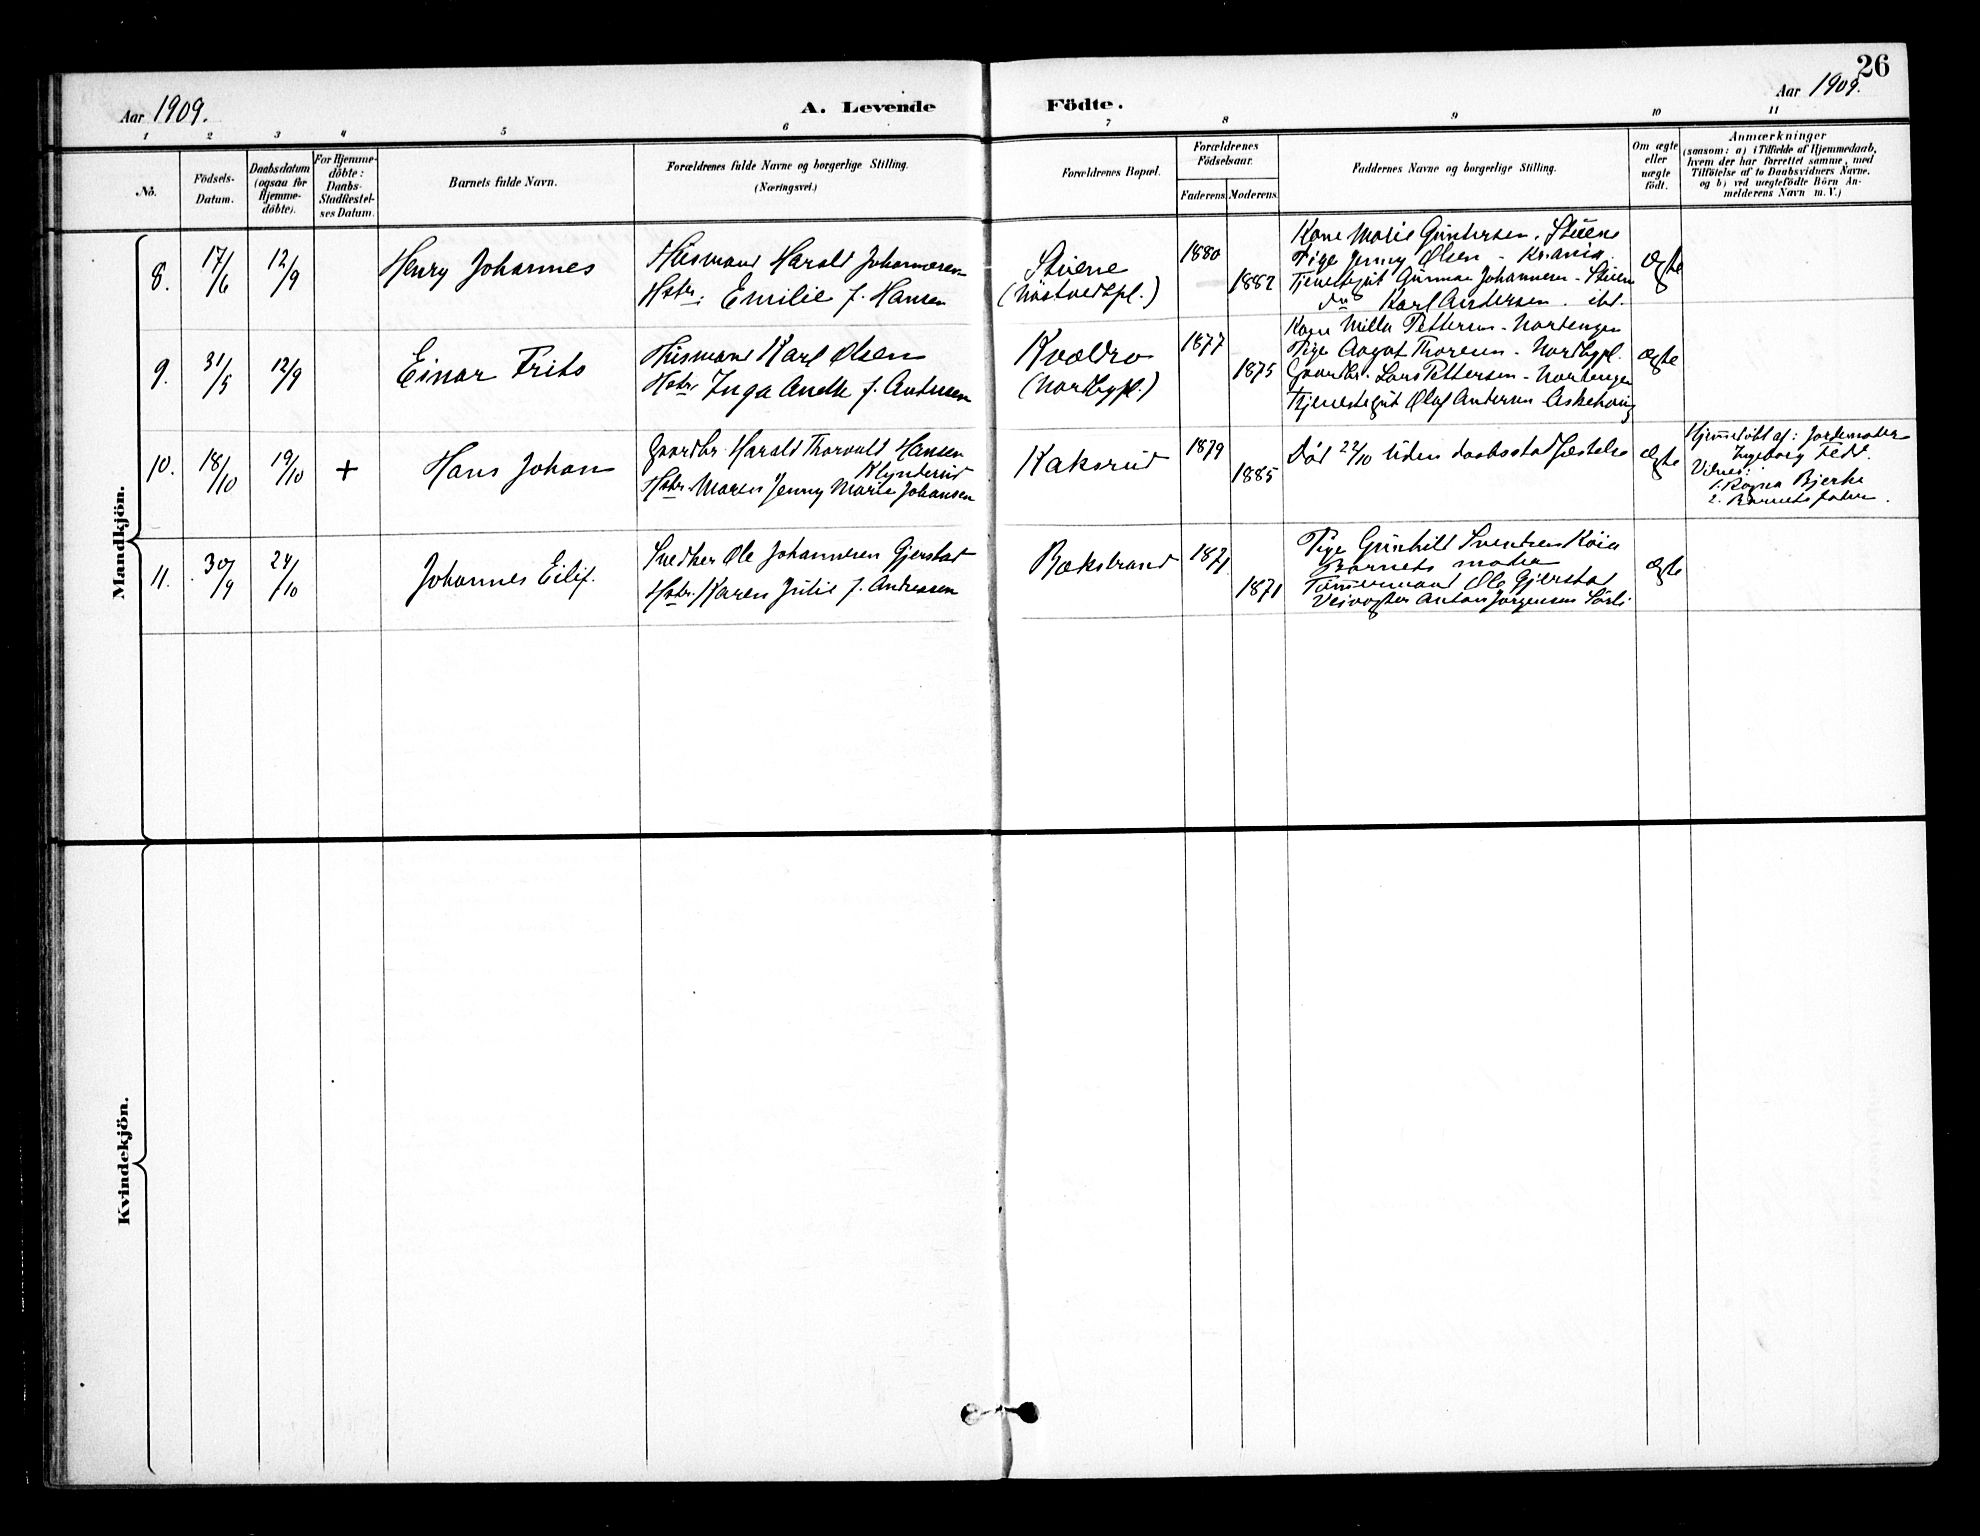 26
Aar 1909.
A. Levende Födte.
Aar 1909.
1 2 3 4 5 6 7 8 9 10 11
No.
Födsels-Datum.
Daabsdatum (ogsaa for Hjemme-döbte).
For Hjemme-döbte: Daabs-Stadfæstel-ses Datum.
Barnets fulde Navn.
Forældrenes fulde Navne og borgerlige Stilling.
(Næringsvei.)
Forældrenes Bopæl.
Forældrenes Födselsaar.
Faderens Moderens
Faddernes Navne og borgerlige Stilling.
Om ægte eller uægte födt.
Anmærkninger
(saasom: a) i Tilfælde af Hjemmedaab,
hvem der har forrettet samme, med
Tilföielse af to Daabsvidners Navne,
og b) ved uægtefödte Börn An-
melderens Navn m. V.)
Mandkjön.
8. 17/6 12/9 Henry Johannes
Husmand Harald Johannesen
Hstr: Emilie f. Hansen
Stuene
(Nöstvedtpl.)
1880
1882
Kone Marie Guntersen. Stuene
Pige Jenny Olsen - Kr.ania.
Tjenestegut Gunnar Johannesen - Stuen
do Karl Andersen. ibd.
ægte
9. 31/5 12/9 Einar Frits
Husmand Karl Olsen
Hstr. Inga f. Andersen
Kvædro
(Nordbypl.)
1877
1875
Kone Milla Pettersen - Nortengen
Pige Aagot Thoresen - Nordbypl.
Gaardbr. Lars Pettersen - Nortengen
Tjenestegut Olaf Andersen - Askehoug
ægte
10. 18/10 19/10 + Hans Johan
Gaardbr. Harald Thorvald Hansen
Klynderud
Hstr. Maren Jenny Marie Johansen
Kaksrud
1879
1885
Död 22/10 uden daabsstadfæstelse
ægte
Hjemmedöbt af: Jordemoder
Ingeborg Fedt.
Vidner:
1. Ragna Bjerke
2. Barnets fader.
11. 30/9 24/10 Johannes Eilif.
Snedker Ole Johannesen Gjerstad
Hstr. Karen Julie f. Andreasen
Bækstrand
1871
1871
Pige Gunhild Svendsen Köia
Barnets moder
Tömmermand Ole Gjerstad
Veivogter Anton Jørgensen Sörli
ægte
Kvindekjön.